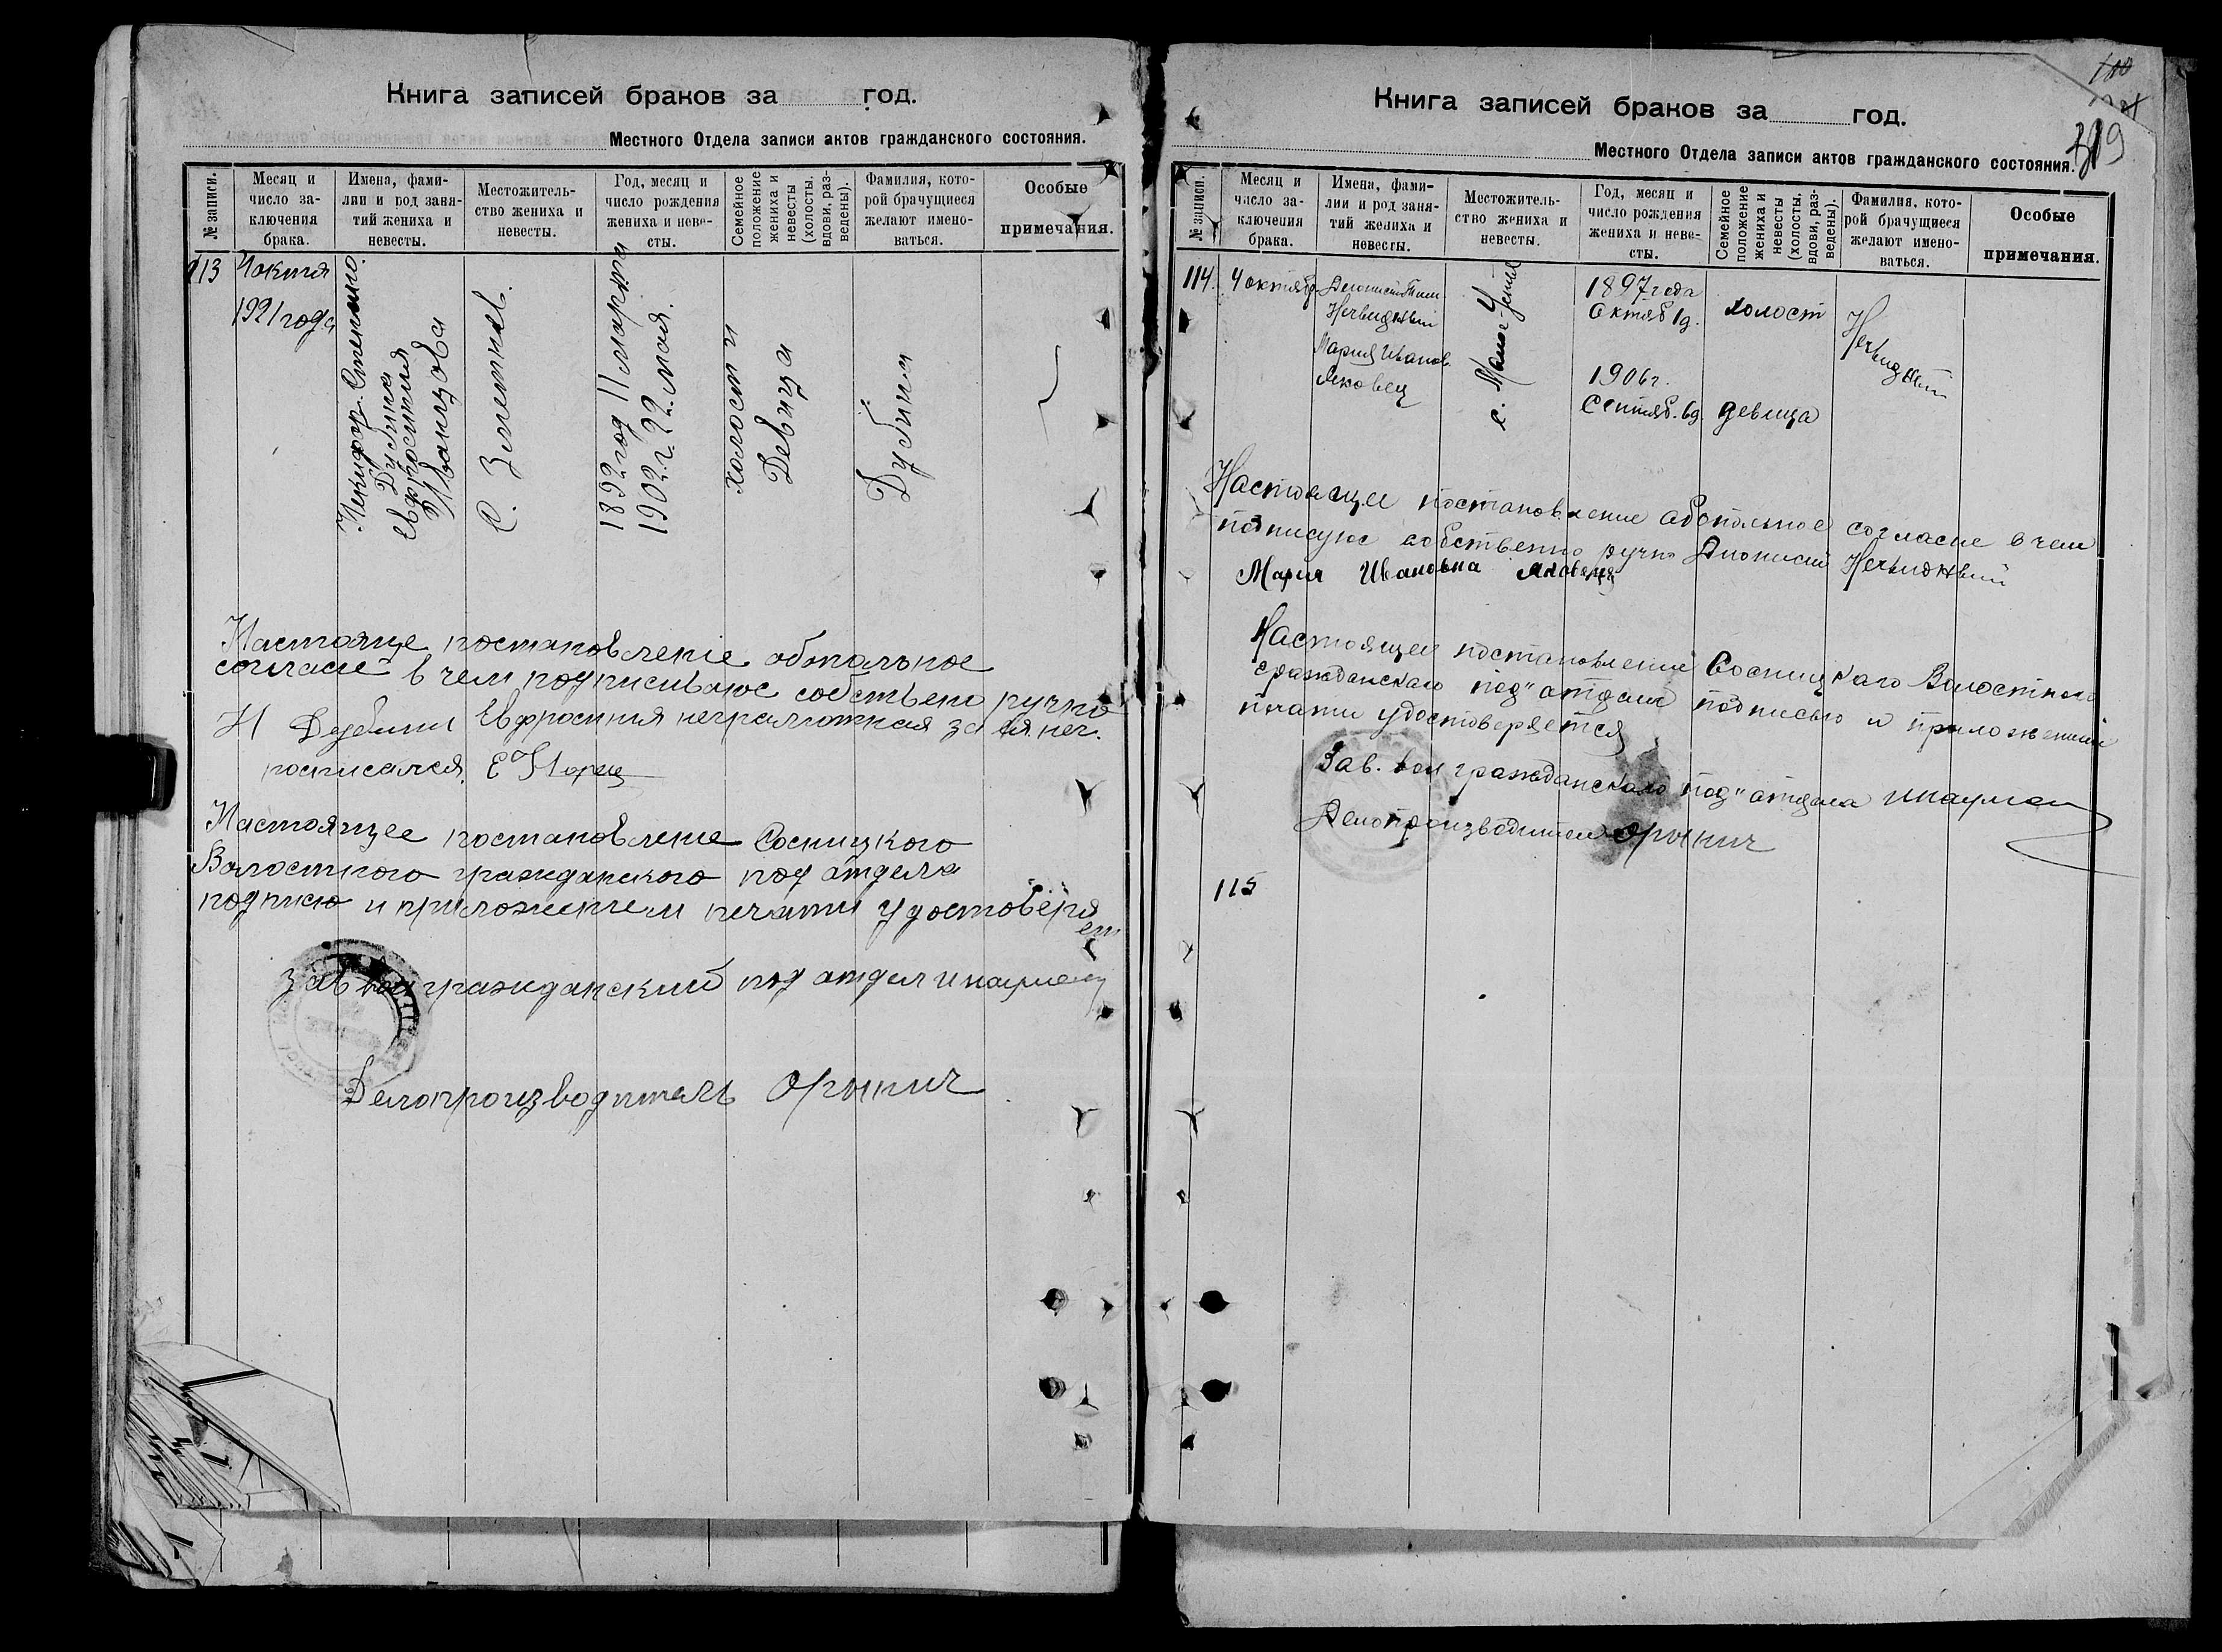 Книга записей браков за год.
Местного Отдела записи актов гражданского состояния.
№ записи.
Месяц и число заключения брака.
Имена, фамилии и род занятий жениха и невесты.
Местожительство жениха и невесты.
Год, месяц и число рождения жениха и невесты.
Семейное положение жениха и невесты (холосты, вдови, разведены).
Фамилия, которой брачущиеся желают именоваться.
Особые примечания.
113
4 октя
1921 года
Никифор
Дубина
Евфросиния
Иванцова
С.
1892 год 11 марта
1902 г. 22 мая.
холост и
Девица
Дубины
Настояще постановление обопольное
согласие в чем подписиваюс собствено ручно
Н Дубини Евфросиния неграмотная за ея нег.
росписался, Е
Настоящее постановление Сосницкого
Волостного гражданского под отдела
подписю и приложением печати удостоверя
ет
Зав вол гражданский под отдел
Делопроизводитель
Книга записей браков за год.
Местного Отдела записи актов гражданского состояния.
319
№ записи.
Месяц и число заключения брака.
Имена, фамилии и род занятий жениха и невесты.
Местожительство жениха и невесты.
Год, месяц и число рождения жениха и невесты.
Семейное положение жениха и невесты (холосты, вдови, разведены).
Фамилия, которой брачущиеся желают именоваться.
Особые примечания.
114.
4 октяб
Мария Иванов.
Яковец
с. Мало-Устье
1897 года
Октяб 1д.
1906 г.
Сентяб. 6д
холост
девица
Настоящее постановление обопольное согласие в чем
подписуюс собственно ручно Дионисий
Мария Ивановна Яковец
Настоящеи постановлений Сосницкаго Волостного
гражданскаго под" отдела подписью и приложением
печати удостоверяется
Зав. вол гражданскаго под" отдела
Делопроизводител
115